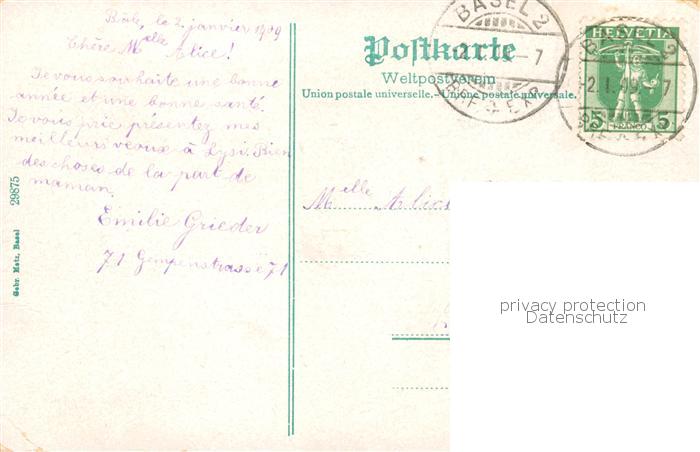 Bâle, le 2 janvier 1909
Chère Melle Alice!
Je vous souhaite une bonne
année et une bonne santé.
Je vous prie présentez mes
meilleurs vœux à Lysi. Bien
des choses de la part de
maman.
Emilie Grieder
71 Gempenstrasse 71
29875
Gebr. Metz, Basel
Postkarte
Weltpostverein
Union postale universelle.–Unione postale universale.
BASEL 2
7
BRF.EX.
HELVETIA
BASEL 2
2.I.09. 7
5 FRANCO 5
Melle Alice
privacy protection
Datenschutz